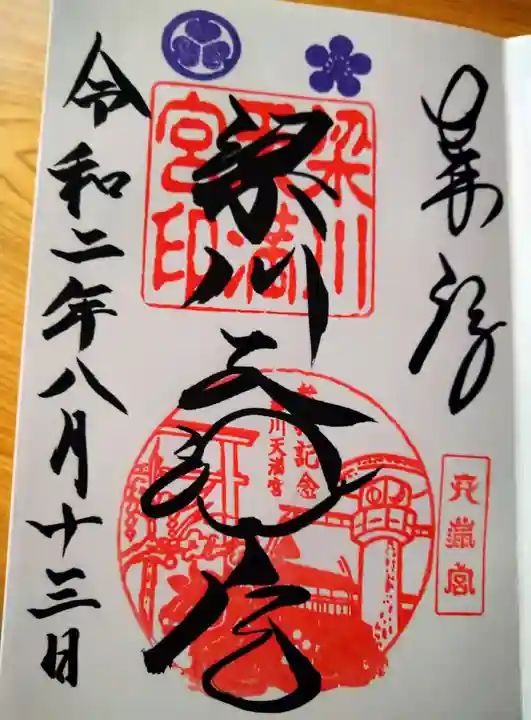 奉拝
梁川天満宮
梁川天満宮印
参拝記念
梁川天満宮
天満宮
令和二年八月十三日